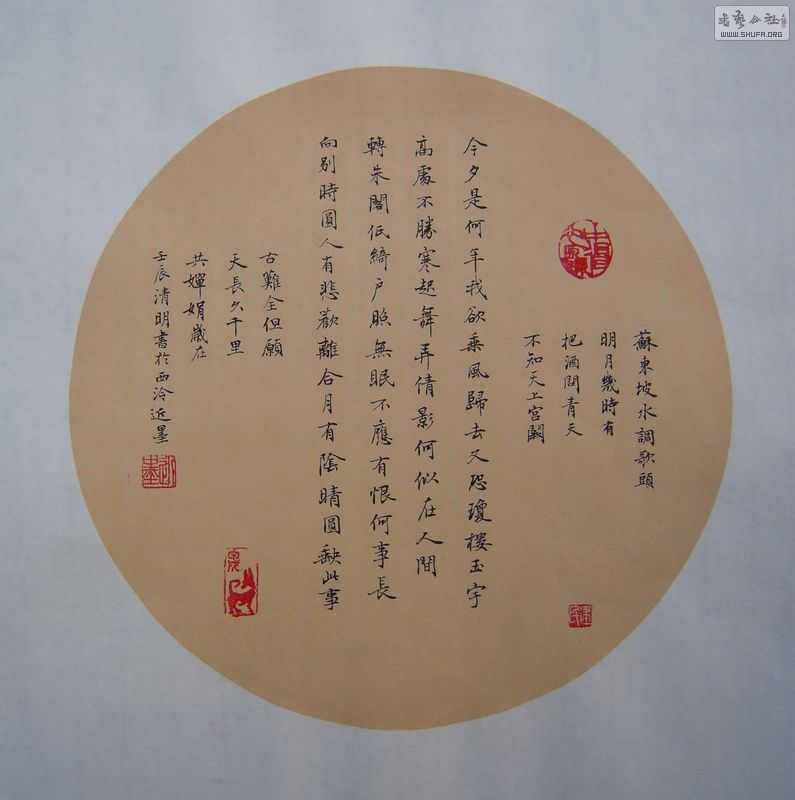 蘇東坡水調歌頭
明月幾時有
把酒問青天
不知天上宫闕
今夕是何年我欲乘風歸去又恐瓊樓玉宇
高處不勝寒起舞弄倩影何似在人間
轉朱閣低綺户照無眠不應有恨何事長
向别時圓人有悲歡離合月有陰晴圓缺此事
古難全但願
天長久千里
共嬋娟歲在
壬辰清明書於西泠近墨
書藝公社
WWW.SHUFA.ORG